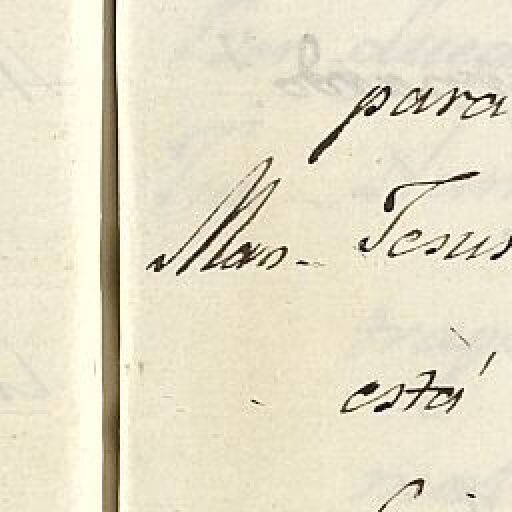 para
Mas- Jesus
está